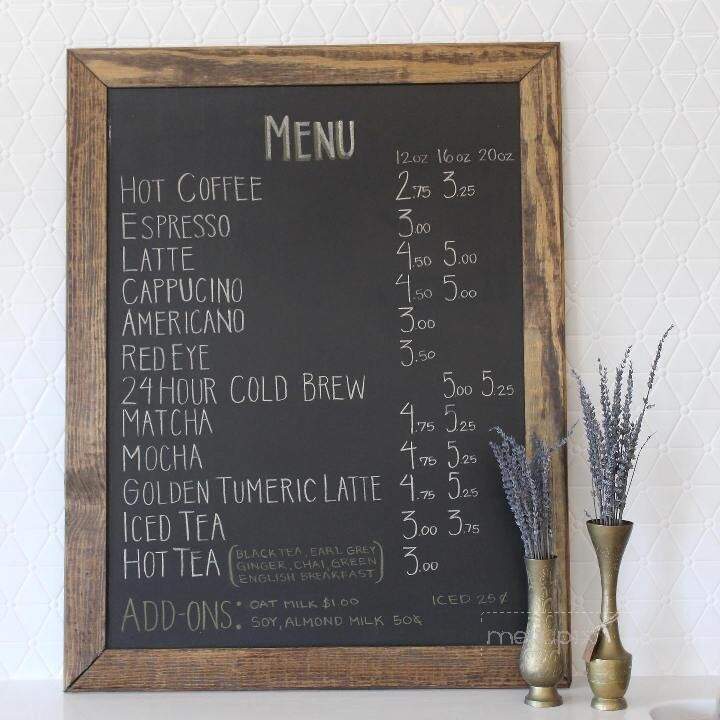 MENU
12oz 16oz 20oz
HOT COFFEE 2.75 3.25
ESPRESSO 3.00
LATTE 4.50 5.00
CAPPUCINO 4.50 5.00
AMERICANO 3.00
RED EYE 3.50
24 HOUR COLD BREW 5.00 5.25
MATCHA 4.75 5.25
MOCHA 4.75 5.25
GOLDEN TUMERIC LATTE 4.75 5.25
ICED TEA 3.00 3.75
HOT TEA (BLACK TEA, EARL GREY 3.00
GINGER, CHAI, GREEN
ENGLISH BREAKFAST)
ADD-ONS: OAT MILK $1.00 ICED 25¢
SOY, ALMOND MILK 50¢